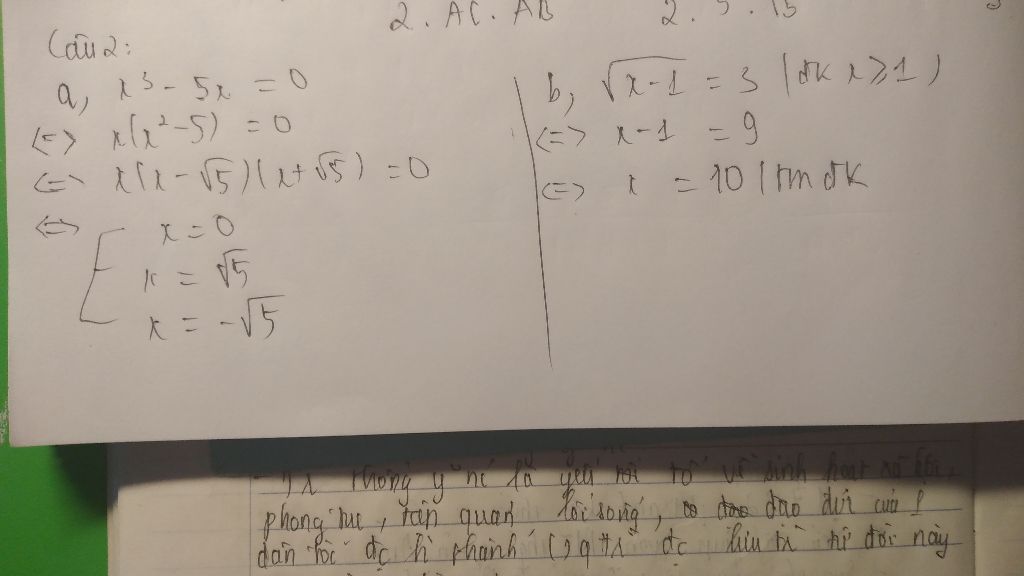 2. AC. AB
2. 5. 13
Câu 2:
a, x³ - 5x = 0
<=> x(x² - 5) = 0
<=> x(x - √5)(x + √5) = 0
<=> [ x = 0
x = √5
x = -√5
b, √x-1 = 3 (đk x ≥ 1)
<=> x - 1 = 9
<=> x = 10 (tm đk
không ý nć là yếu tối về sinh hoạt xã hội,
phong tục, tập quán lối sống, đạo đức của 1
dân tộc đc h thành đc lưu từ đời này